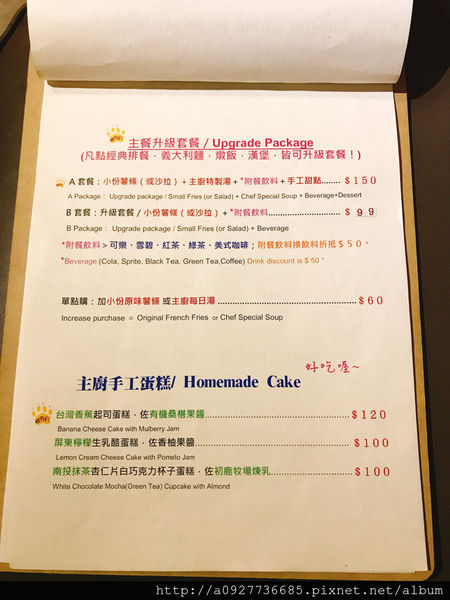 主餐升級套餐 / Upgrade Package
(凡點經典排餐，義大利麵，燉飯，漢堡，皆可升級套餐！)
A 套餐：小份薯條（或沙拉）+主廚特製湯+*附餐飲料+手工甜點....... $150
A Package： Upgrade package / Small Fries (or Salad) + Chef Special Soup + Beverage+Dessert
B 套餐：升級套餐 / 小份薯條（或沙拉）+*附餐飲料........................ $ 99
B Package： Upgrade package / Small Fries (or Salad) + Beverage
*附餐飲料 > 可樂、雪碧、紅茶、綠茶、美式咖啡；附餐飲料換飲料折抵$50"
*Beverage (Cola, Sprite, Black Tea, Green Tea,Coffee) Drink discount is $ 50 "
單點購：加小份原味薯條 或主廚每日湯................................................ $60
Increase purchase = Original French Fries or Chef Special Soup
好吃喔~
主廚手工蛋糕/ Homemade Cake
台灣香蕉起司蛋糕，佐有機桑椹果醬................................................ $120
Banana Cheese Cake with Mulberry Jam
屏東檸檬生乳酪蛋糕，佐香柚果醬................................................... $100
Lemon Cream Cheese Cake with Pomelo Jam
南投抹茶杏仁片白巧克力杯子蛋糕，佐初鹿牧場煉乳............................ $100
White Chocolate Mocha(Green Tea) Cupcake with Almond
http://a0927736685.pixnet.net/album